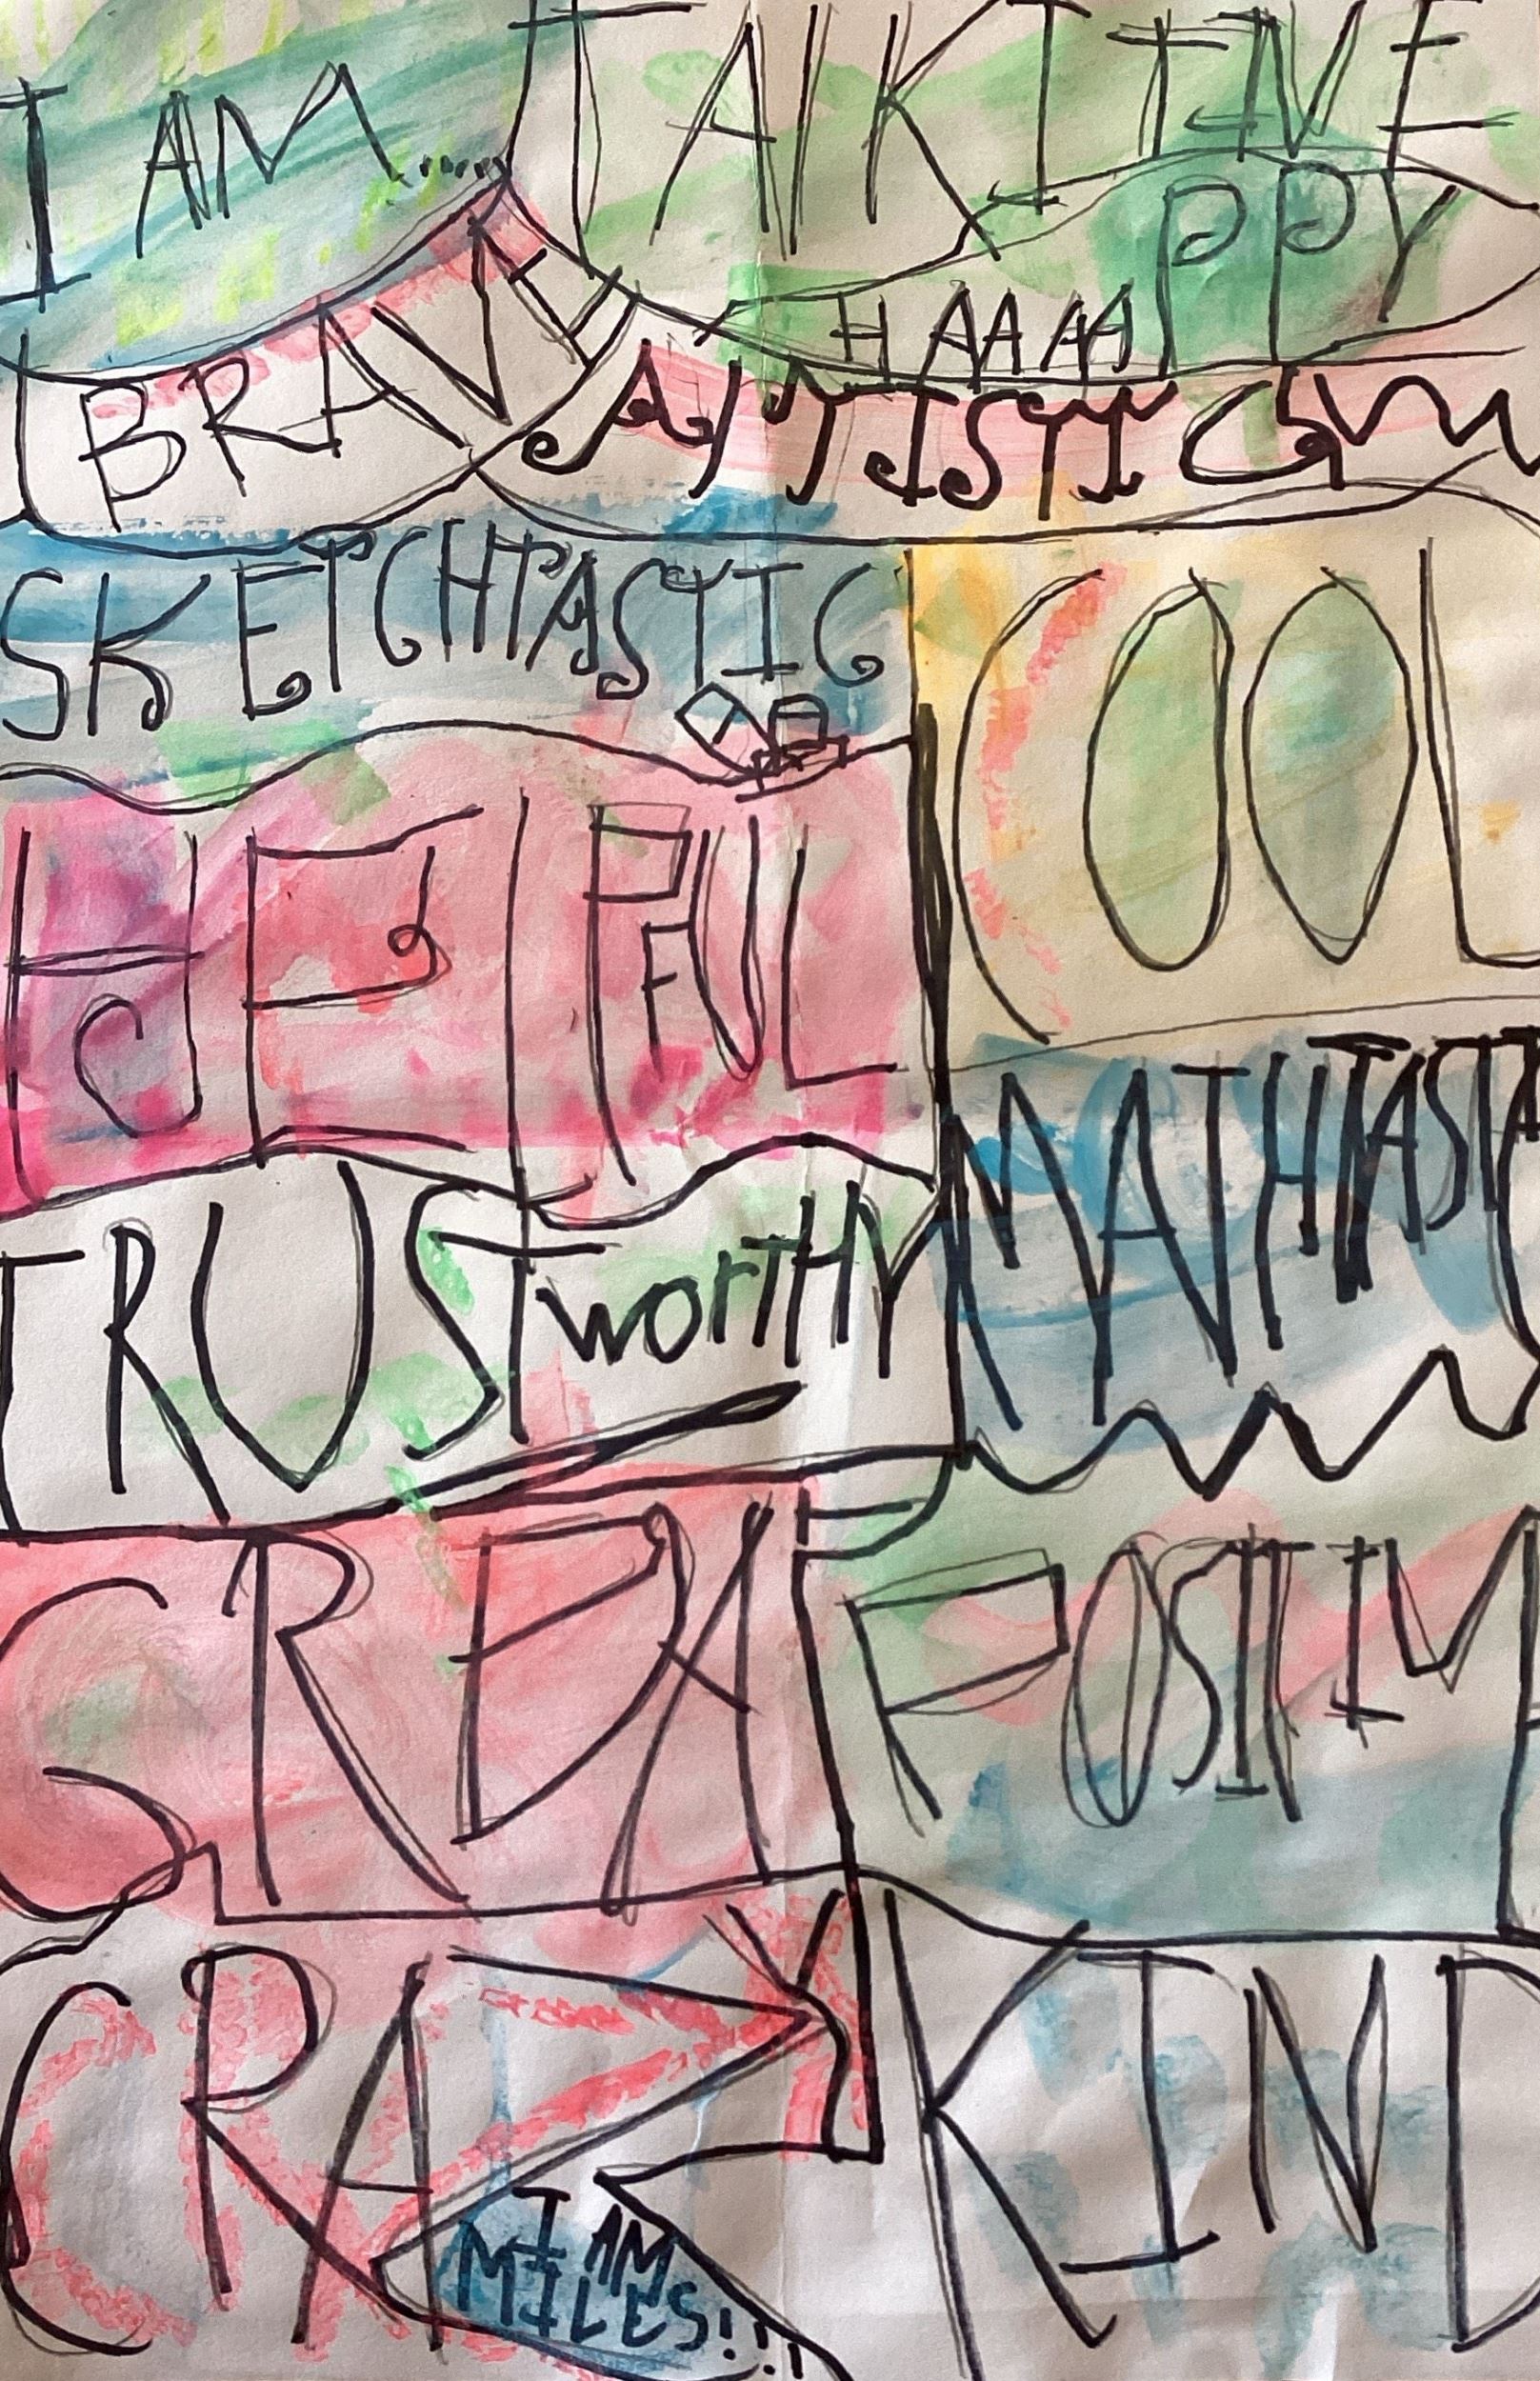 I AM.....
TALKTIVE
HAAAAPPY
BRAVE
SKETCHTASTIC
COOL
HELPFUL
MATHTASTIC
TRUSTworTHY
GREAT
POSITIVE
CRAZY
KIND
I AM
MILES!!!